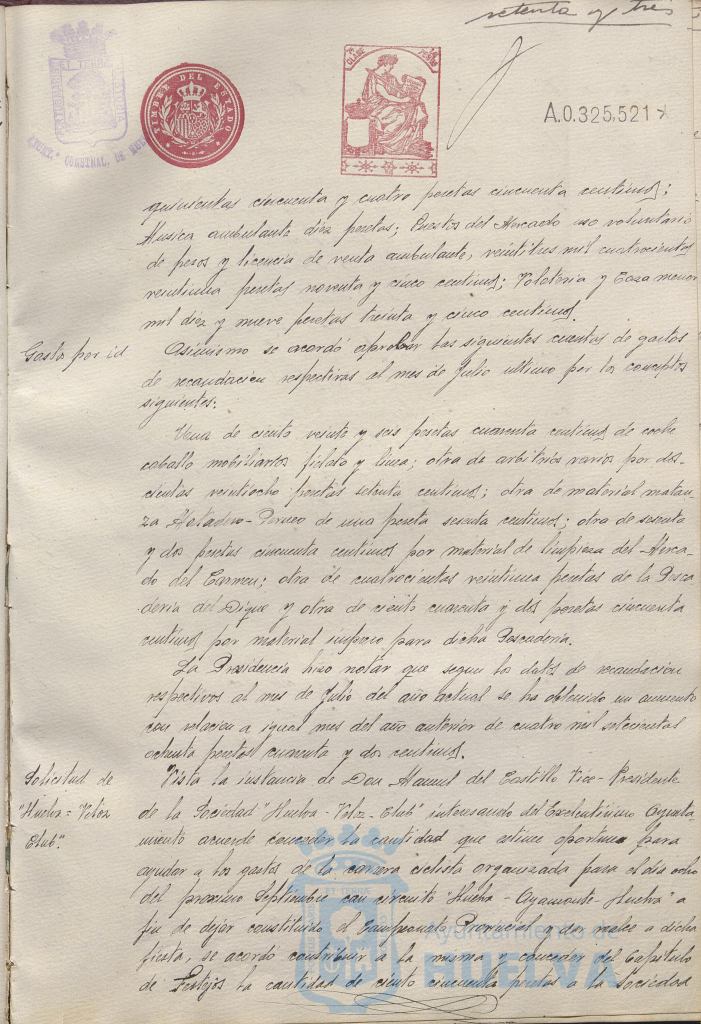 setenta y tres
PORTUS MARIS ET TERRAE CUSTODIA
TIMBRE DEL ESTADO
CLASE
A.0.325,521
quinientas cincuenta y cuatro pesetas cincuenta centimos;
Musica ambulante diez pesetas; Puestos del Mercado uso voluntario
de pesos y licencia de venta ambulante, veintitres mil cuatrocientas
veintiuna pesetas noventa y cinco centimos; Volateria y Caza menor
mil diez y nueve pesetas treinta y cinco centimos.
Gasto por id
Asimismo se acordó aprobar las siguientes cuentas de gastos
de recaudacion respectivas al mes de Julio ultimo por los conceptos
siguientes:
Una de ciento veinte y seis pesetas cuarenta centimos de coche
caballo mobiliarios fielato y linea; otra de arbitrios varios por dos-
cientas veintiocho pesetas setenta centimos; otra de material matan-
za Matadero-Porcuno de una peseta sesenta centimos; otra de sesenta
y dos pesetas cincuenta centimos por material de limpieza del Merca-
do del Carmen; otra de cuatrocientas veintiuna pesetas de la Pesca-
deria del Dique y otra de ciento cuarenta y dos pesetas cincuenta
centimos por material impreso para dicha Pescaderia.
La Presidencia hizo notar que segun los datos de recaudacion
respectivos al mes de Julio del año actual se ha obtenido un aumento
con relacion a igual mes del año anterior de cuatro mil setecientas
ochenta pesetas cuarenta y dos centimos.
Solicitud de
"Huelva=Veloz
Club".
Vista la instancia de Don Manuel del Castillo Vice-Presidente
de la Sociedad "Huelva-Veloz-Club" interesando del Excelentisimo Ayunta-
miento acuerde conceder la cantidad que estime oportuna para
ayudar a los gastos de la carrera ciclista organizada para el dia ocho
del proximo Septiembre con circuito "Huelva-Ayamonte-Huelva" a
fin de dejar constituido el Campeonato Provincial y dar realce a dicha
fiesta, se acordó contribuir a la misma y conceder del Capitulo
de Festejos la cantidad de ciento cincuenta pesetas a la Sociedad
Ayuntamiento de
HUELVA